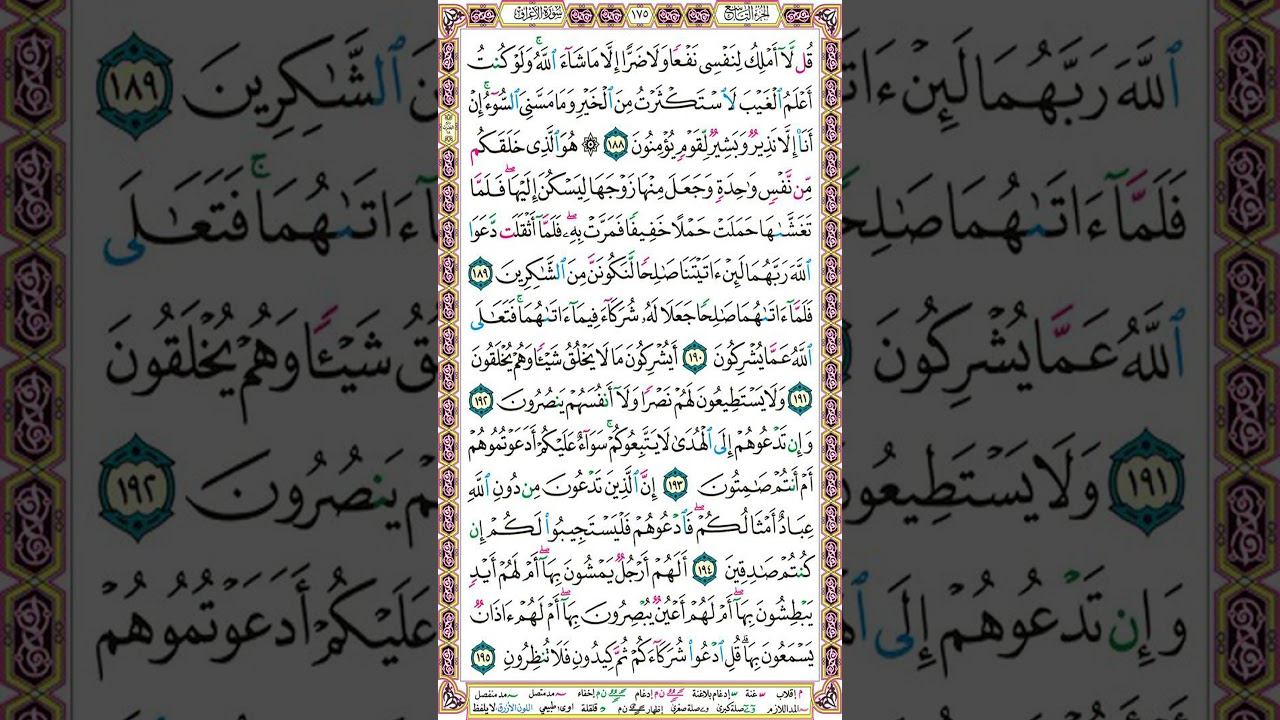 الجزء التاسع ١٧٥ سورة الأعراف
قُل لَّآ أَمْلِكُ لِنَفْسِى نَفْعًا وَلَا ضَرًّا إِلَّا مَا شَآءَ ٱللَّهُ ۚ وَلَوْ كُنتُ
أَعْلَمُ ٱلْغَيْبَ لَٱسْتَكْثَرْتُ مِنَ ٱلْخَيْرِ وَمَا مَسَّنِىَ ٱلسُّوٓءُ ۚ إِنْ
أَنَا۠ إِلَّا نَذِيرٌ وَبَشِيرٌ لِّقَوْمٍ يُؤْمِنُونَ ١٨٨ ۞ هُوَ ٱلَّذِى خَلَقَكُم
مِّن نَّفْسٍ وَٰحِدَةٍ وَجَعَلَ مِنْهَا زَوْجَهَا لِيَسْكُنَ إِلَيْهَا ۖ فَلَمَّا
تَغَشَّىٰهَا حَمَلَتْ حَمْلًا خَفِيفًا فَمَرَّتْ بِهِۦ ۖ فَلَمَّآ أَثْقَلَت دَّعَوَا
ٱللَّهَ رَبَّهُمَا لَئِنْ ءَاتَيْتَنَا صَٰلِحًا لَّنَكُونَنَّ مِنَ ٱلشَّٰكِرِينَ ١٨٩
فَلَمَّآ ءَاتَىٰهُمَا صَٰلِحًا جَعَلَا لَهُۥ شُرَكَآءَ فِيمَآ ءَاتَىٰهُمَا ۚ فَتَعَٰلَى
ٱللَّهُ عَمَّا يُشْرِكُونَ ١٩٠ أَيُشْرِكُونَ مَا لَا يَخْلُقُ شَيْـًٔا وَهُمْ يُخْلَقُونَ
١٩١ وَلَا يَسْتَطِيعُونَ لَهُمْ نَصْرًا وَلَآ أَنفُسَهُمْ يَنصُرُونَ ١٩٢
وَإِن تَدْعُوهُمْ إِلَى ٱلْهُدَىٰ لَا يَتَّبِعُوكُمْ ۚ سَوَآءٌ عَلَيْكُمْ أَدَعَوْتُمُوهُمْ
أَمْ أَنتُمْ صَٰمِتُونَ ١٩٣ إِنَّ ٱلَّذِينَ تَدْعُونَ مِن دُونِ ٱللَّهِ
عِبَادٌ أَمْثَالُكُمْ ۖ فَٱدْعُوهُمْ فَلْيَسْتَجِيبُوا۟ لَكُمْ إِن
كُنتُمْ صَٰدِقِينَ ١٩٤ أَلَهُمْ أَرْجُلٌ يَمْشُونَ بِهَآ ۖ أَمْ لَهُمْ أَيْدٍ
يَبْطِشُونَ بِهَآ ۖ أَمْ لَهُمْ أَعْيُنٌ يُبْصِرُونَ بِهَآ ۖ أَمْ لَهُمْ ءَاذَانٌ
يَسْمَعُونَ بِهَا ۗ قُلِ ٱدْعُوا۟ شُرَكَآءَكُمْ ثُمَّ كِيدُونِ فَلَا تُنظِرُونِ ١٩٥
م إقلاب غنة إدغام بلا غنة ن م إدغام ن م إخفاء مد متصل مد منفصل
المد اللازم صلة كبرى صلة صغرى إظهار ن م قلقلة اوى طبيعي اللون الأزرق لا يلفظ